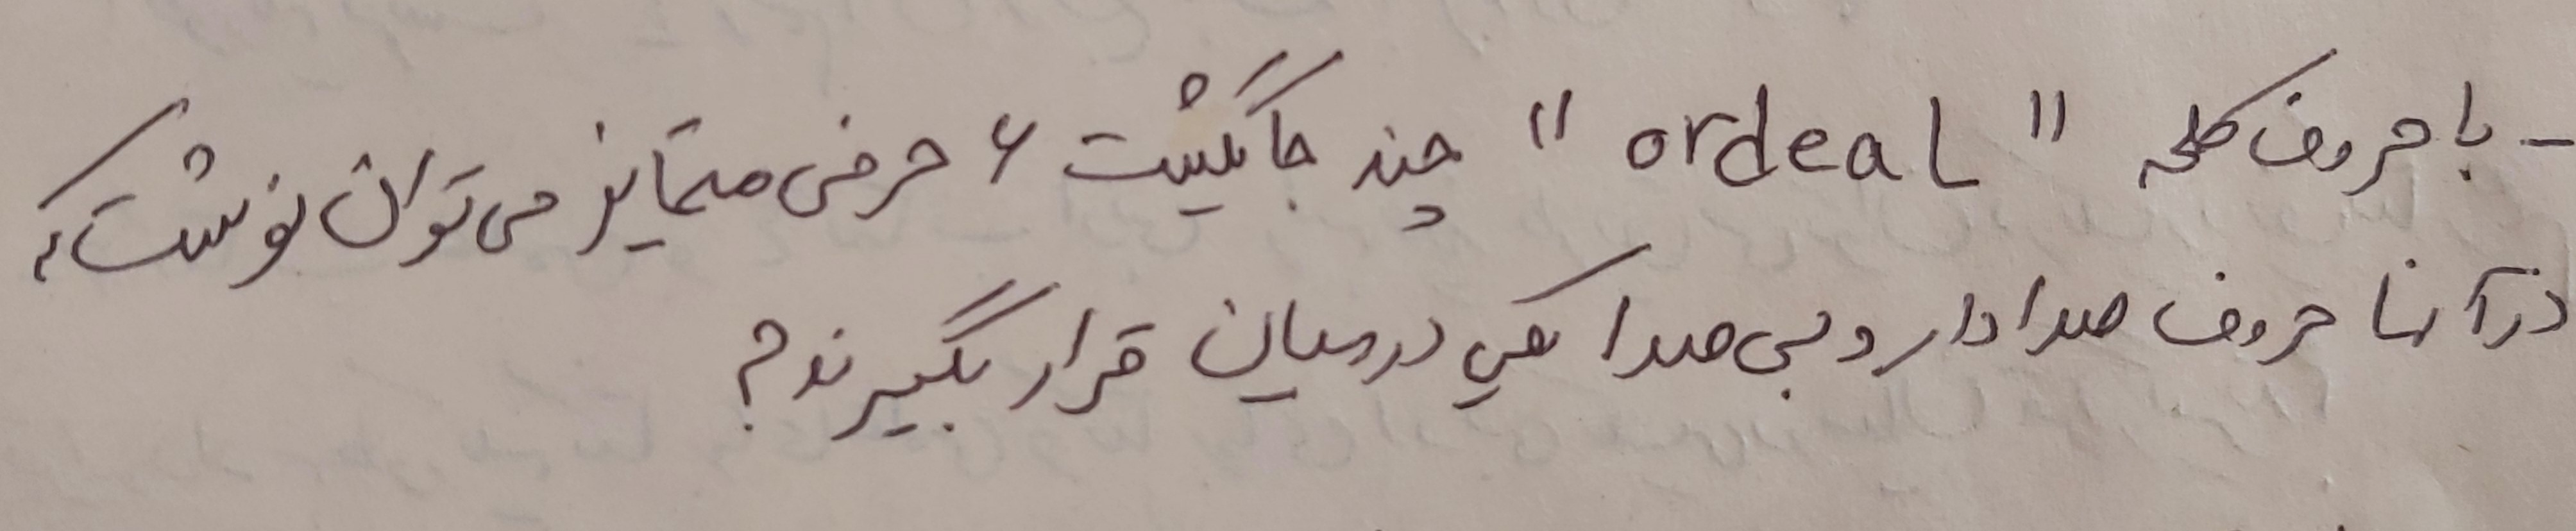 - با حروف کلمه "ordeal" چند جایگشت ۶ حرفی متمایز می‌توان نوشت که
در آنها حروف صدادار و بی‌صدا یکی درمیان قرار بگیرند؟